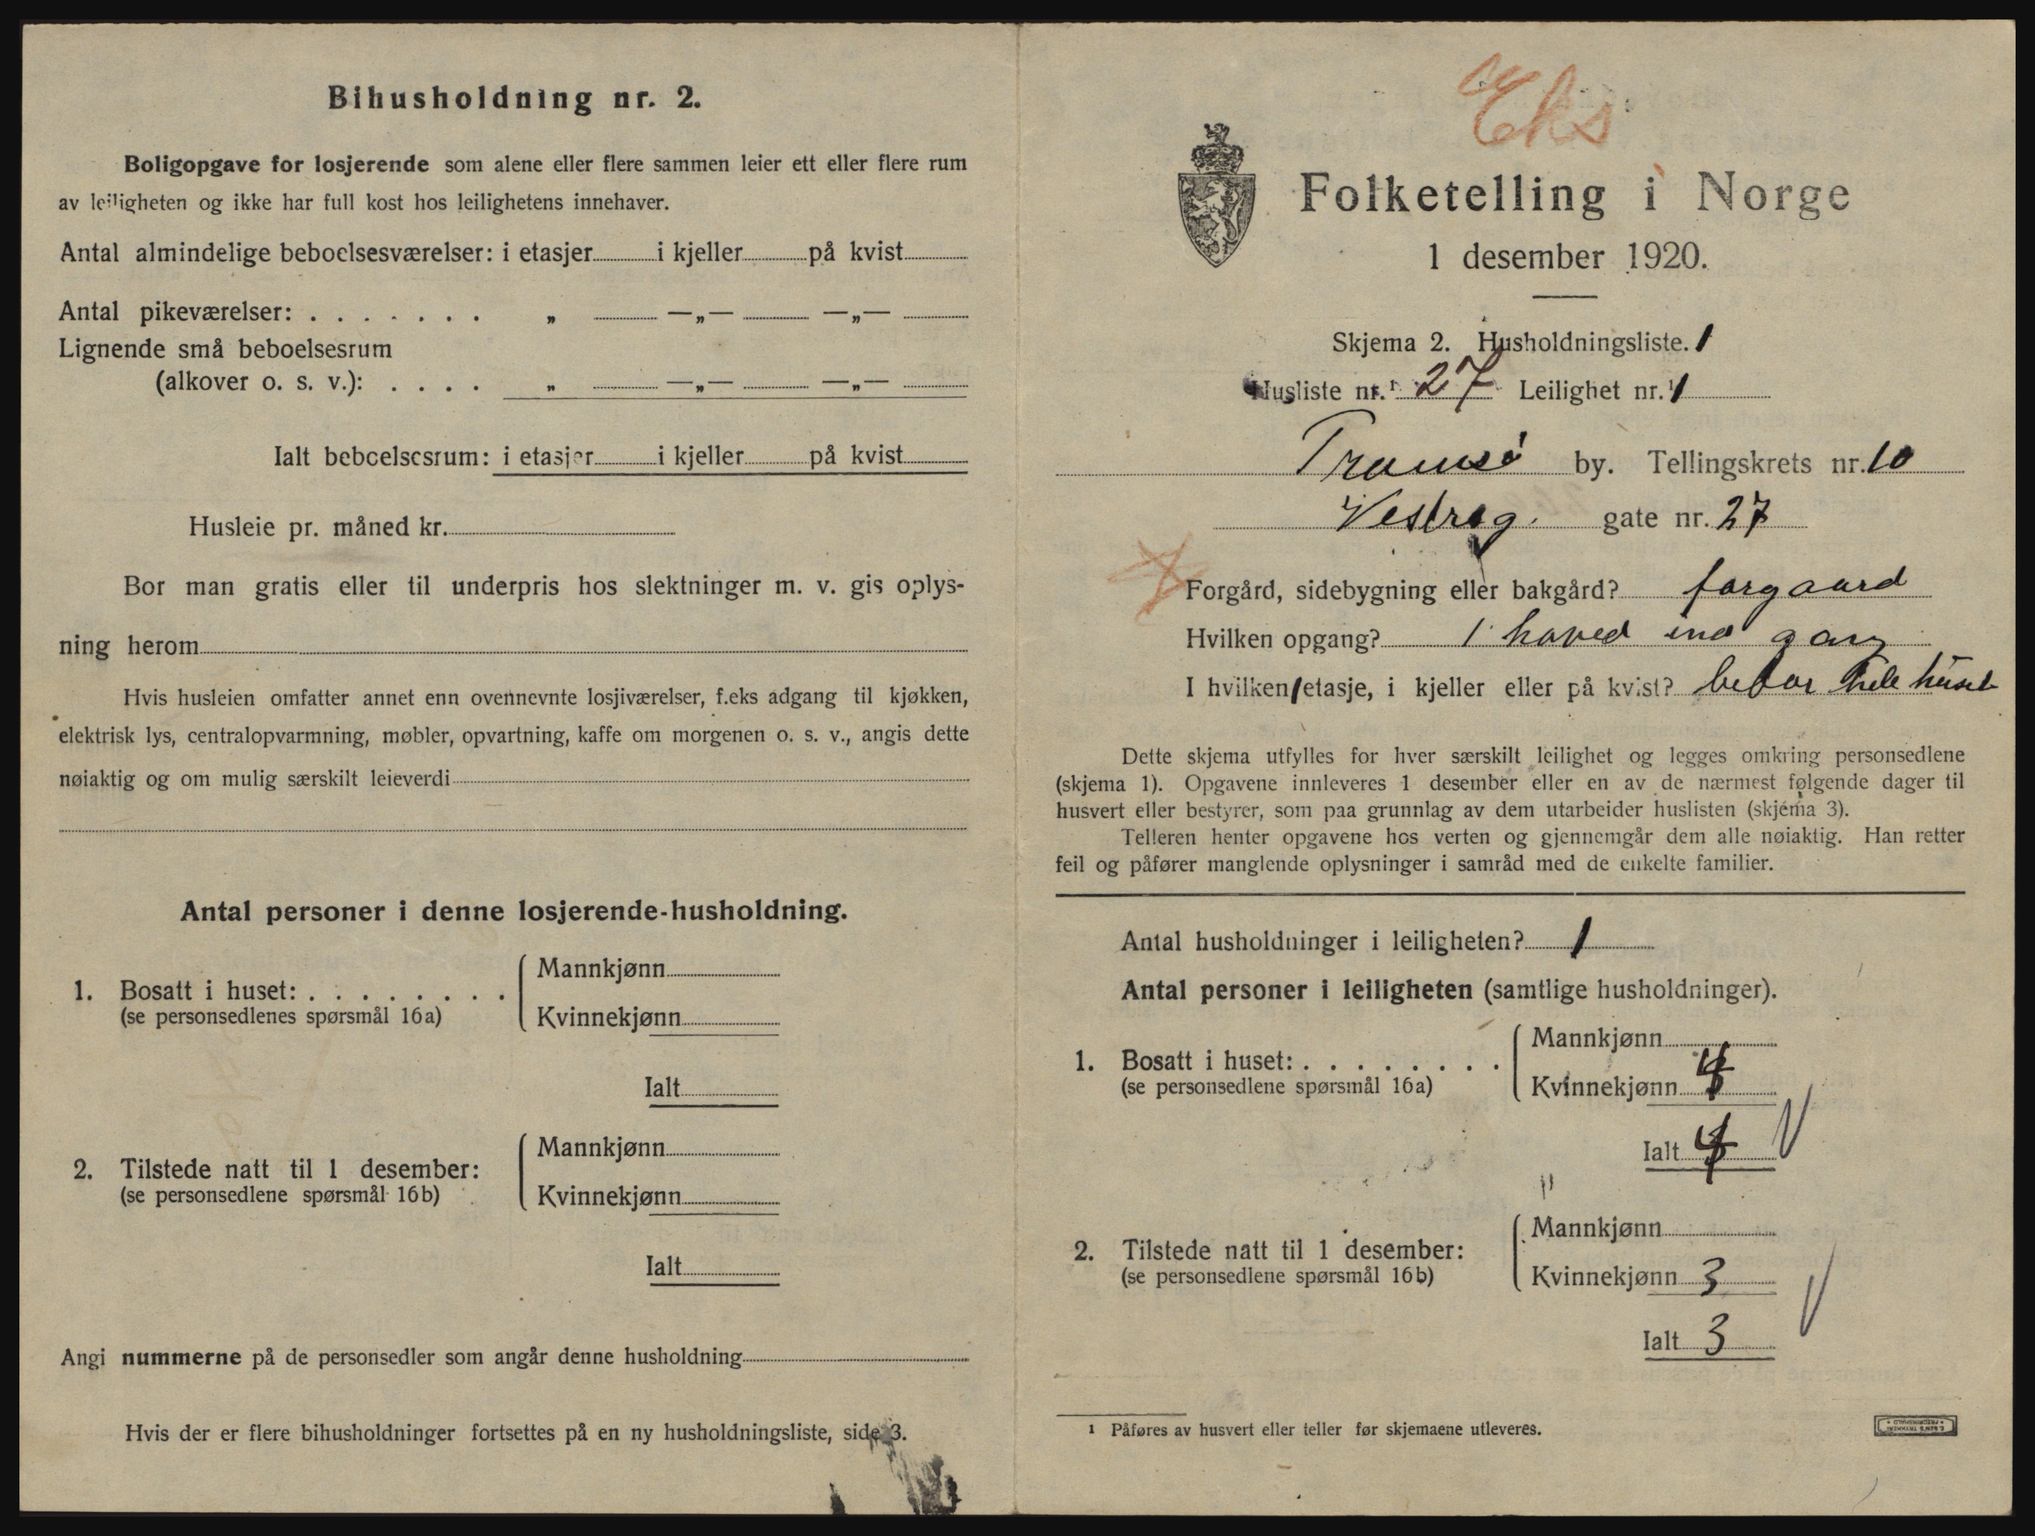 Bihusholdning nr. 2.
Boligopgave for losjerende som alene eller flere sammen leier ett eller flere rum
av leiligheten og ikke har full kost hos leilighetens innehaver.
Antal almindelige beboelsesværelser: i etasjer i kjeller på kvist
Antal pikeværelser: . . . . . . . „ —„— —„—
Lignende små beboelsesrum
(alkover o. s. v.): . . . . „ —„— —„—
Ialt beboelsesrum: i etasjer i kjeller på kvist
Husleie pr. måned kr.
Bor man gratis eller til underpris hos slektninger m. v. gis oplys-
ning herom
Hvis husleien omfatter annet enn ovennevnte losjiværelser, f.eks adgang til kjøkken,
elektrisk lys, centralopvarmning, møbler, opvartning, kaffe om morgenen o. s. v., angis dette
nøiaktig og om mulig særskilt leieverdi
Antal personer i denne losjerende-husholdning.
1. Bosatt i huset: . . . . . . . . Mannkjønn
(se personsedlenes spørsmål 16a) Kvinnekjønn
Ialt
2. Tilstede natt til 1 desember: Mannkjønn
(se personsedlene spørsmål 16b) Kvinnekjønn
Ialt
Angi nummerne på de personsedler som angår denne husholdning
Hvis der er flere bihusholdninger fortsettes på en ny husholdningsliste, side 3.
Eks
Folketelling i Norge
1 desember 1920.
Skjema 2. Husholdningsliste. 1
Husliste nr.¹ 27 Leilighet nr.¹ 1
Tromsø by. Tellingskrets nr. 10
Vestreg. gate nr. 27
Forgård, sidebygning eller bakgård? forgaard
Hvilken opgang? 1 hoved ind gang
I hvilken etasje, i kjeller eller på kvist? bebor hele huset
Dette skjema utfylles for hver særskilt leilighet og legges omkring personsedlene
(skjema 1). Opgavene innleveres 1 desember eller en av de nærmest følgende dager til
husvert eller bestyrer, som paa grunnlag av dem utarbeider huslisten (skjema 3).
Telleren henter opgavene hos verten og gjennemgår dem alle nøiaktig. Han retter
feil og påfører manglende oplysninger i samråd med de enkelte familier.
Antal husholdninger i leiligheten? 1
Antal personer i leiligheten (samtlige husholdninger).
1. Bosatt i huset: . . . . . . . . Mannkjønn
(se personsedlene spørsmål 16a) Kvinnekjønn 4
Ialt 4
2. Tilstede natt til 1 desember: Mannkjønn
(se personsedlene spørsmål 16b) Kvinnekjønn 3
Ialt 3
¹ Påføres av husvert eller teller før skjemaene utleveres.